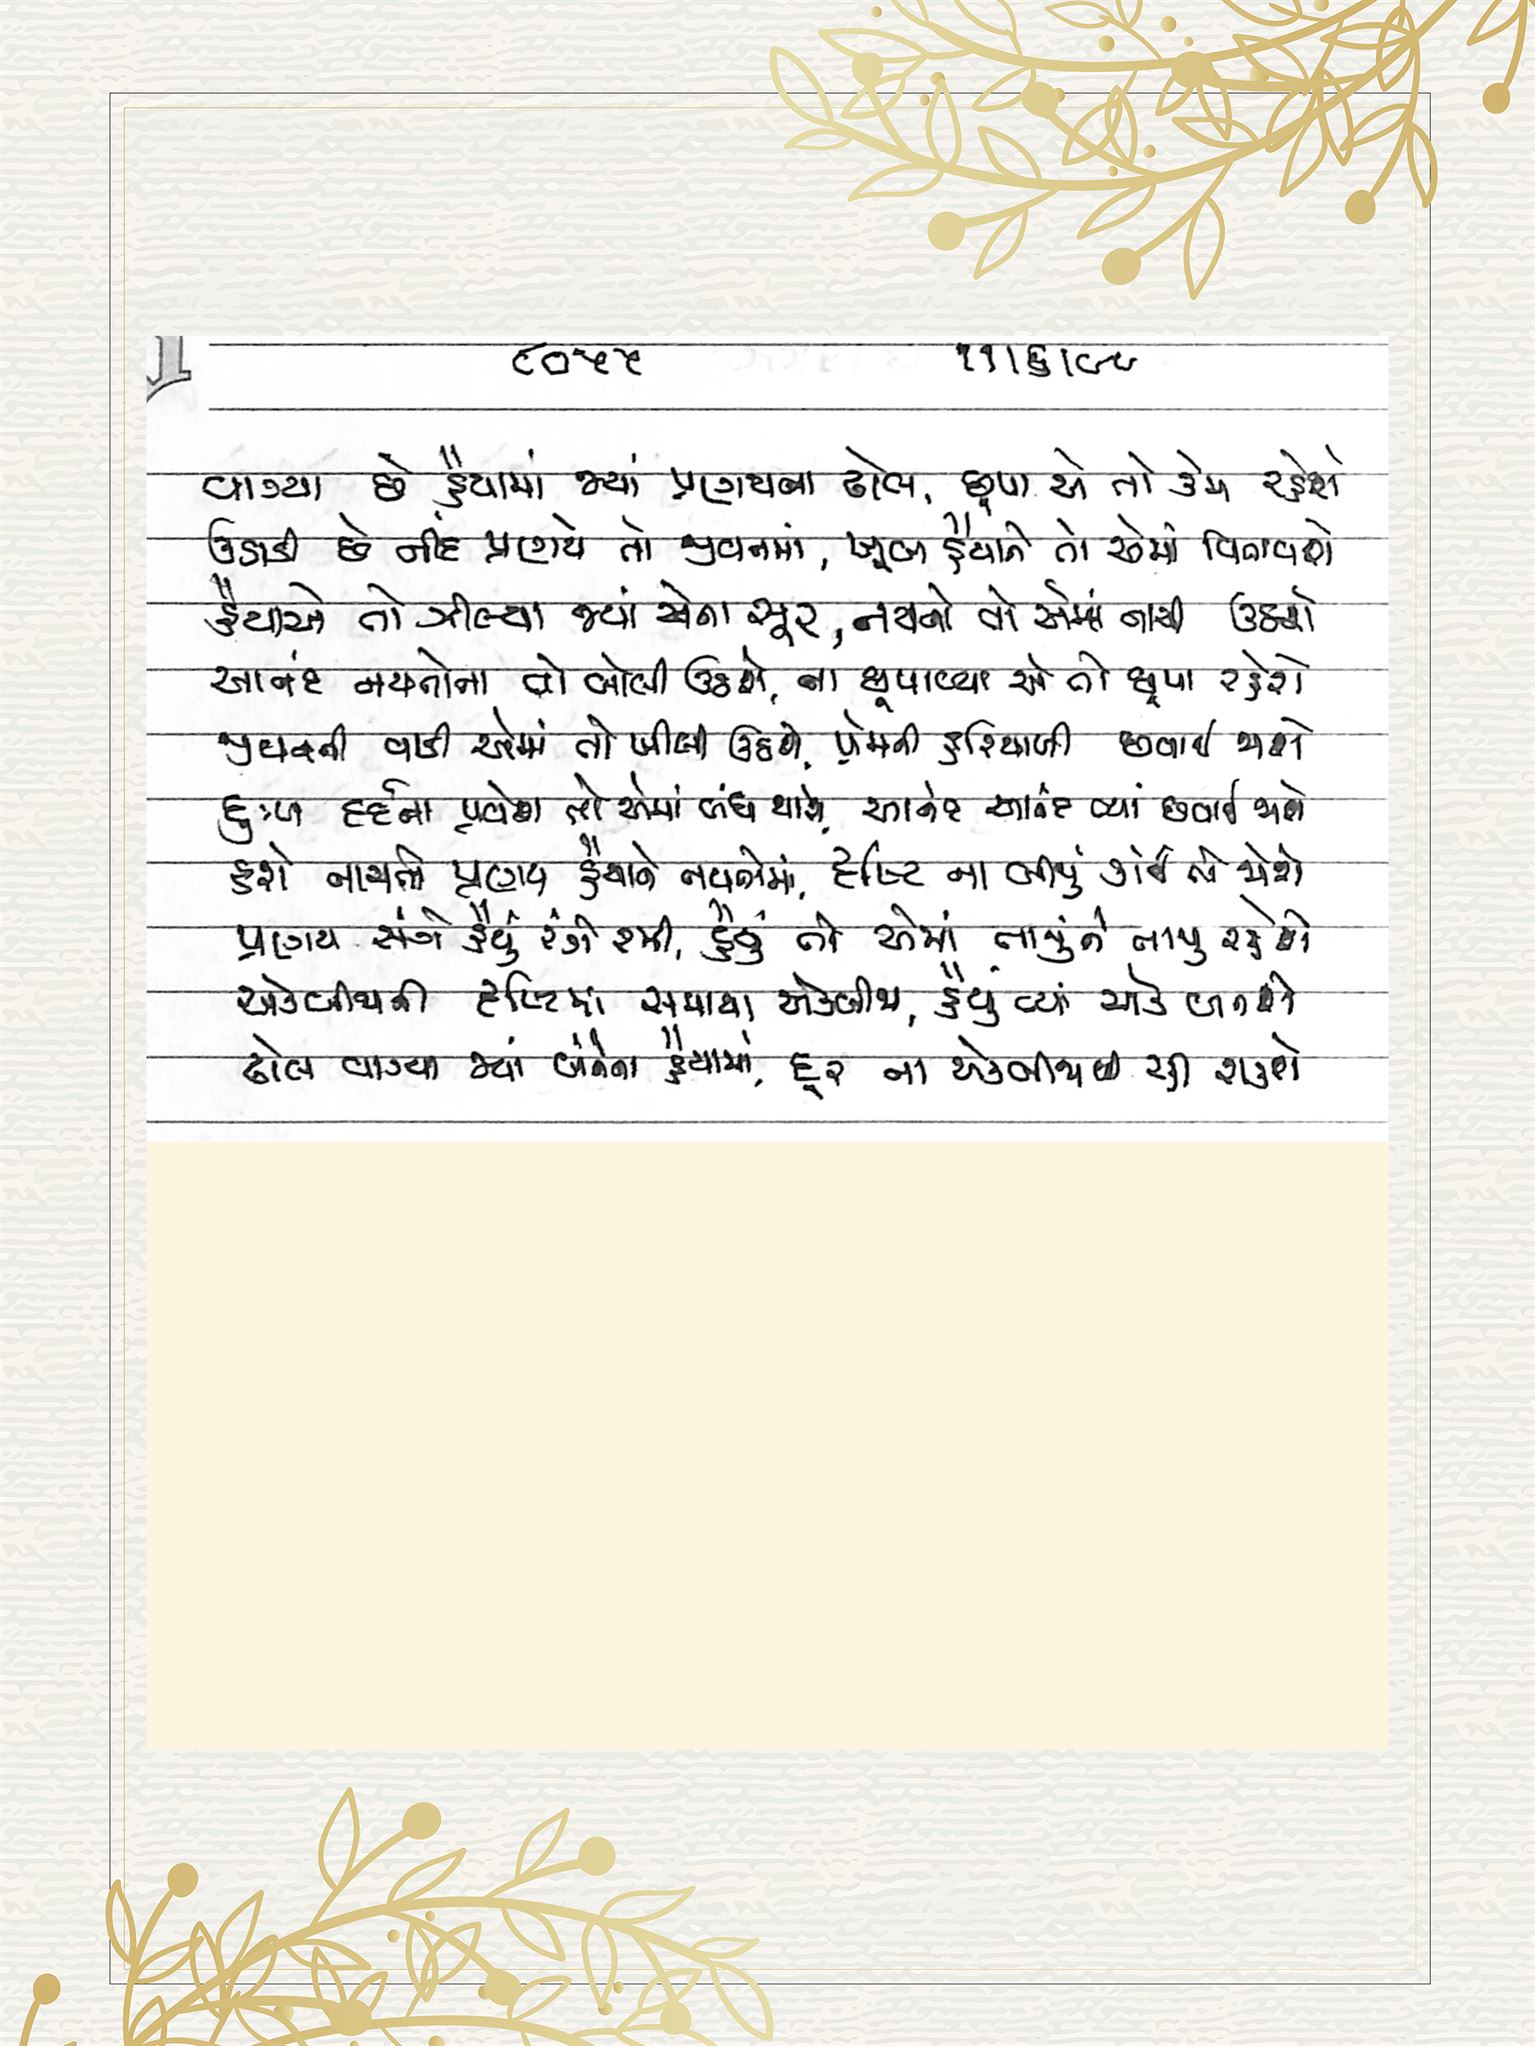 ૮૦૫૫ ૧૧।૬।૯૯
વાગ્યા છે હૈયામાં જ્યાં પ્રણયના ઢોલ, છૂપા એ તો કેમ રહેશે
ઉડાડી છે નીંદ પ્રણયે તો જીવનમાં, ખૂબ હૈયાને તો એમાં
હૈયાએ તો ઝીલ્યા જ્યાં એના સૂર, નયનો તો એમાં નાચી ઉઠશે
આનંદ નયનોના તો બોલી ઉઠશે, ના છૂપાવ્યા એ તો છૂપા રહેશે
જીવનની વાડી એમાં તો ખીલી ઉઠશે, પ્રેમની હરિયાળી છવાઈ જાશે
દુઃખ દર્દના પ્રવેશ તો એમાં બંધ થાશે, આનંદ આનંદ ત્યાં છવાઈ જાશે
હશે નાચતો પ્રણય હૈયાને નયનોમાં, દૃષ્ટિ ના બીજું કાંઈ તો જોશે
પ્રણય સંગે હૈયું રંગે રમી, હૈયું તો એમાં નાચ્યું ને નાચ્યુ રહેશે
એકબીજાની દૃષ્ટિમાં સમાયા એકબીજા, હૈયું ત્યાં એક બનશે
ઢોલ વાગ્યા જ્યાં બંનેના હૈયામાં, દૂર ના એકબીજાથી રહી શકશે